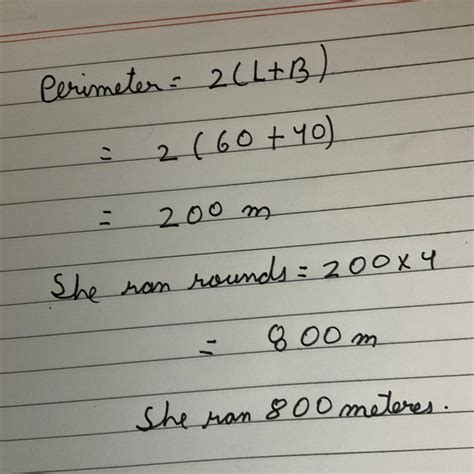 Perimeter = 2(L+B)
= 2(60+40)
= 200 m
She ran rounds = 200×4
= 800m
She ran 800 meteres.